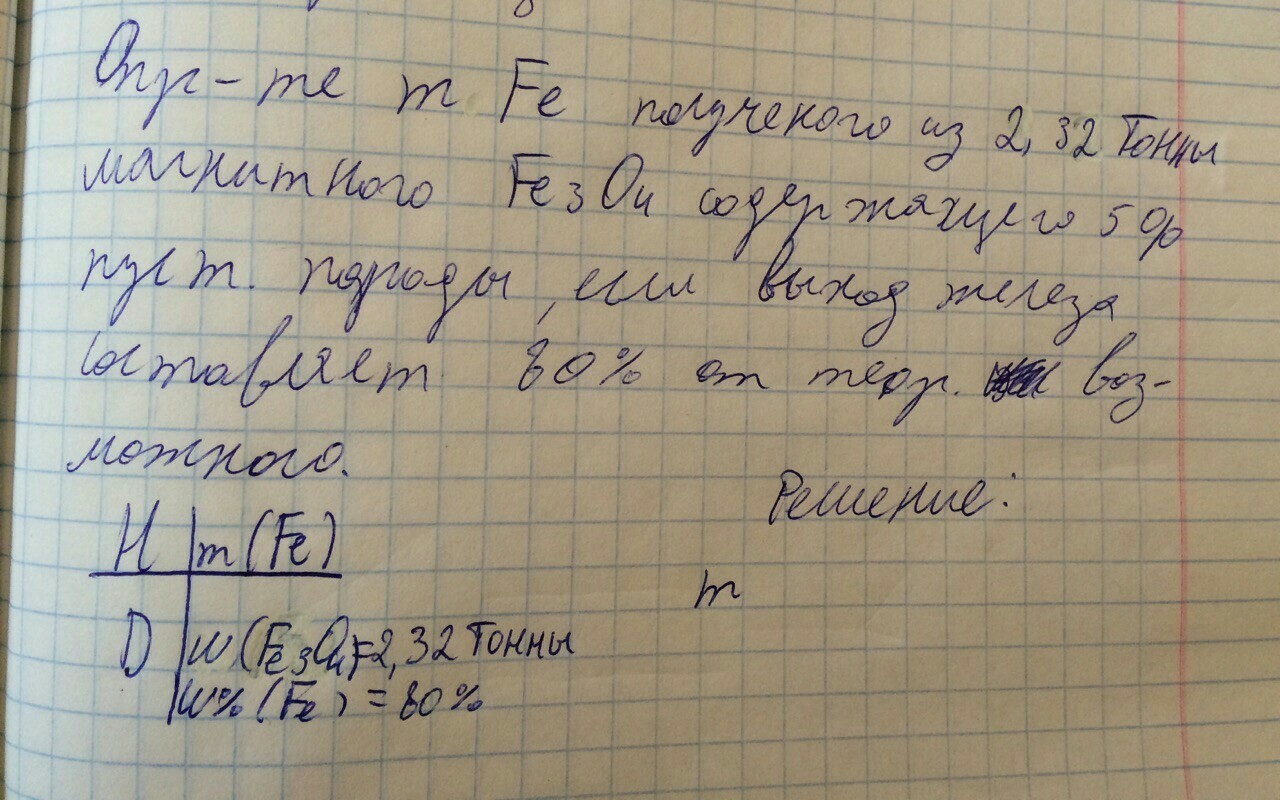 Опр-те m Fe полученого из 2,32 Тонны
магнитного Fe3O4 содержащего 5%
пуст. породы, если выход железа
составляет 80% от теор. воз-
можного.
Решение:
Н m(Fe)
m
D w(Fe3O4)=2,32 Тонны
w%(Fe) = 80%